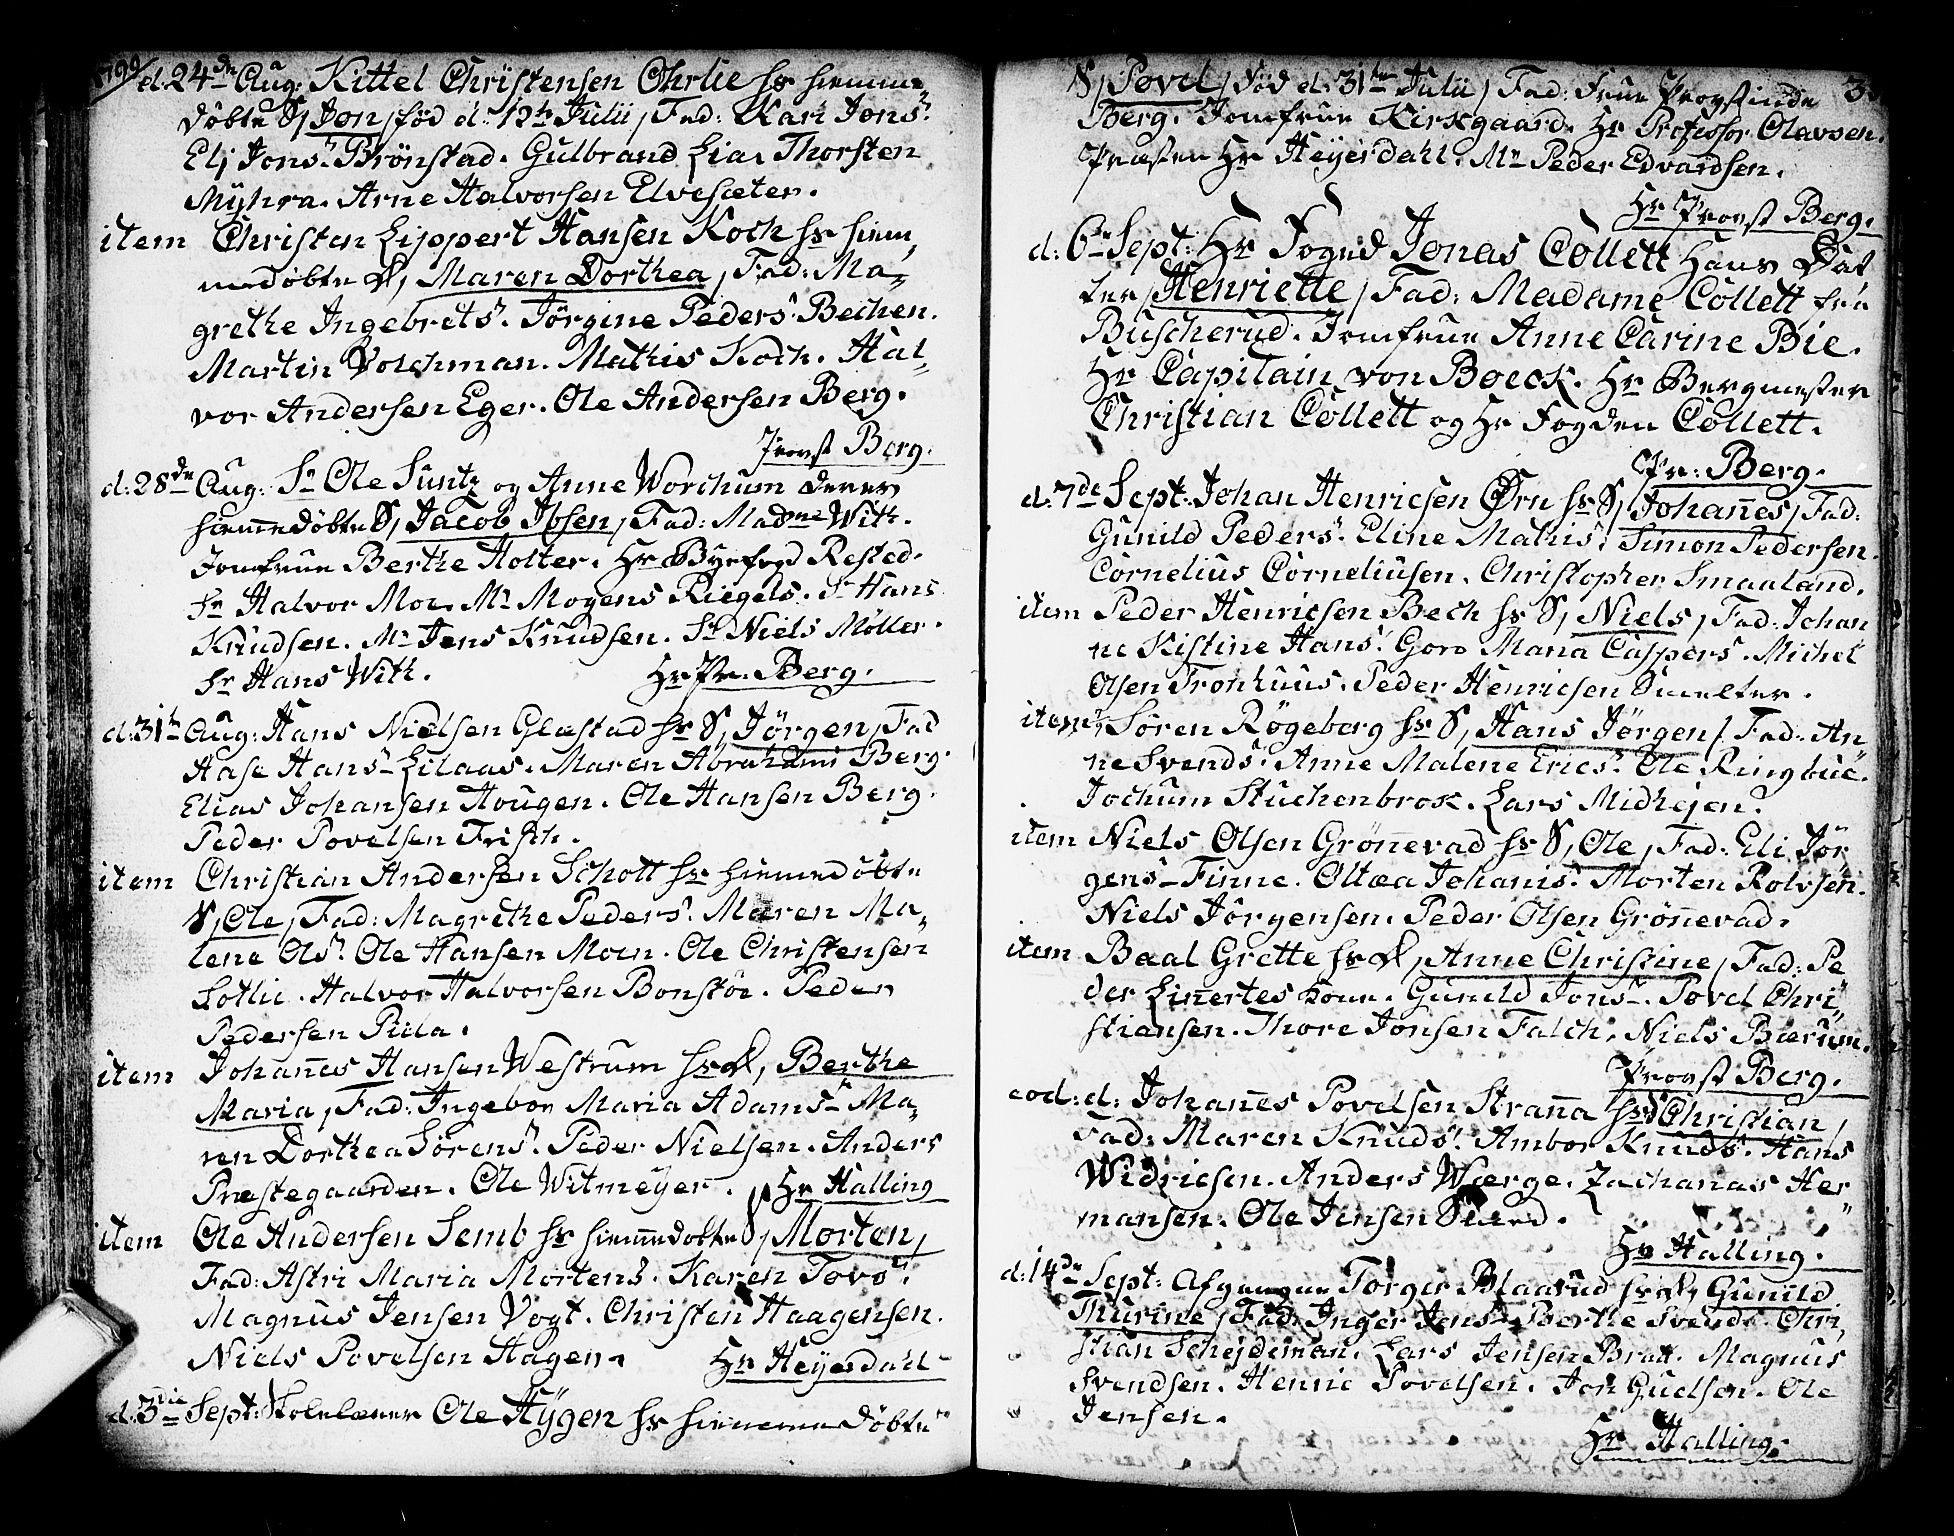 1799
d. 24de Aug: Kittel Christensen Ohrlie hs hiemme
døbte S, Jon, fød d: 12te Julii, Fad: Kari Jons:
Eli Jons: Brønstad. Gulbrand Lia. Thorsten
Myhra. Arne Halvorsen Elvesæter.
item Christen Lippert Hansen Koch hs hiem,
medøbte D, Maren Dorthea, Fad: Ma-
grethe Ingebrets: Jørgine Peders: Bechen.
Martin Volchman. Mathis Koch. Hal-
vor Andersen Eger. Ole Andersen Berg.
Provst Berg.
d: 28de Aug: Sr Ole Suntz og Anne Worchum deres
hiemmedøbte S, Jacob Ibsen, Fad: Madme With.
Jomfrue Berthe Holter. Hr Byefogd Rested.
Sr Halvor Moe. Mr Mogens Riegels. Sr Hans
Knudsen. Mr Jens Knudsen. Sr Niels Møller.
Sr Hans With. Hr Pr. Berg.
d: 31te Aug: Hans Nielsen Glæstad hs S, Jørgen, Fad
Aase Hans: Lilaas. Maren Abrahams Berg.
Elias Johansen Hougen. Ole Hansen Berg.
Peder Povelsen Frisch.
item Christian Andersen Schott hs hiemmedøbte
S, Ole, Fad: Magrethe Peders: Maren Ma-
lene Ols: Ole Hansen Moen. Ole Christensen
Lotlie. Halvor Halvorsen Bonstøe. Peder
Pedersen Piila.
item Johannes Hansen Westrum hs D, Berthe
Maria, Fad: Ingebor Maria Adams: Ma-
ren Dorthea Sørens: Peder Nielsen. Anders
Præstegaarden. Ole Witmeyer. Hr Halling
item Ole Andersen Semb hs hiemmedøbte S, Morten,
Fad: Astri Maria Mortens. Karen Tovs:
Magnus Jensen Vogt. Christen Haagensen.
Niels Povelsen Hagen. Hr Heyerdahl
d. 3die Sept: Skolelærer Ole Hygen hs hiemmedøbte
S, Povel, fød d: 31te Julii, Fad: Frue Provstinde
Berg. Jomfrue Kirkgaard. Hr Professor Olavsen.
Præsten Hr Heyerdahl. Mr Peder Edvardsen.
Hr Provst Berg.
d: 6te Sept: Hr Foged Jonas Collett Hans Dat
ter, Henriette, Fad: Madame Collett fra
Buscherud. Jomfrue Anne Carine Bie.
Hr Capitain von Boeck. Hr Bergmester
Christian Collett og Hr Fogden Collett.
Pr: Berg.
d: 7de Sept: Johan Henricsen Ørn hs S, Johannes, Fad:
Gunild Peders: Eline Mathis: Simon Pedersen.
Cornelius Corneliusen. Christopher Smaaland.
item Peder Henricsen Bech hs S, Niels, Fad: Johan
ne Kistine Hans: Goro Maria Caspers. Michel
Olsen Fronhuus. Peder Henricsen Smelter.
item Søren Røgeberg hs S, Hans Jørgen, Fad: An
ne Svends: Anne Malene Erics: Ole Ringbue.
Jochum Stuchenbrok. Lars Midhejen.
item Niels Olsen Grønnevad hs S, Ole, Fad: Eli Jør
gens Finne. Oltæa Johanis: Morten Rolvsen.
Niels Jørgensen. Peder Olsen Grønnevad.
item Baal Grette hs D, Anne Christine, Fad: Pe
der Linnertes Kone. Gunild Jons: Povel Chri
stiansen. Thore Jonsen Falch. Niels Bærum.
Provst Berg.
eod: d: Johannes Povelsen Stranna hs S Christian,
Fad: Maren Knuds: Ambor Knuds: Hans
Widricsen. Anders Wærge. Zacharias Her
mansen. Ole Jensen
Hr Halling.
d: 14de Sept: Afgangne Torger Blaarud hs D, Gunild
Thurine, Fad: Inger Jons: Berthe Svends: Chri,
stian Schejdeman. Lars Jensen Bratt. Magnus
Svendsen. Henric Povelsen. Jon Gudlsen. Ole
Jensen.
Hr Halling.